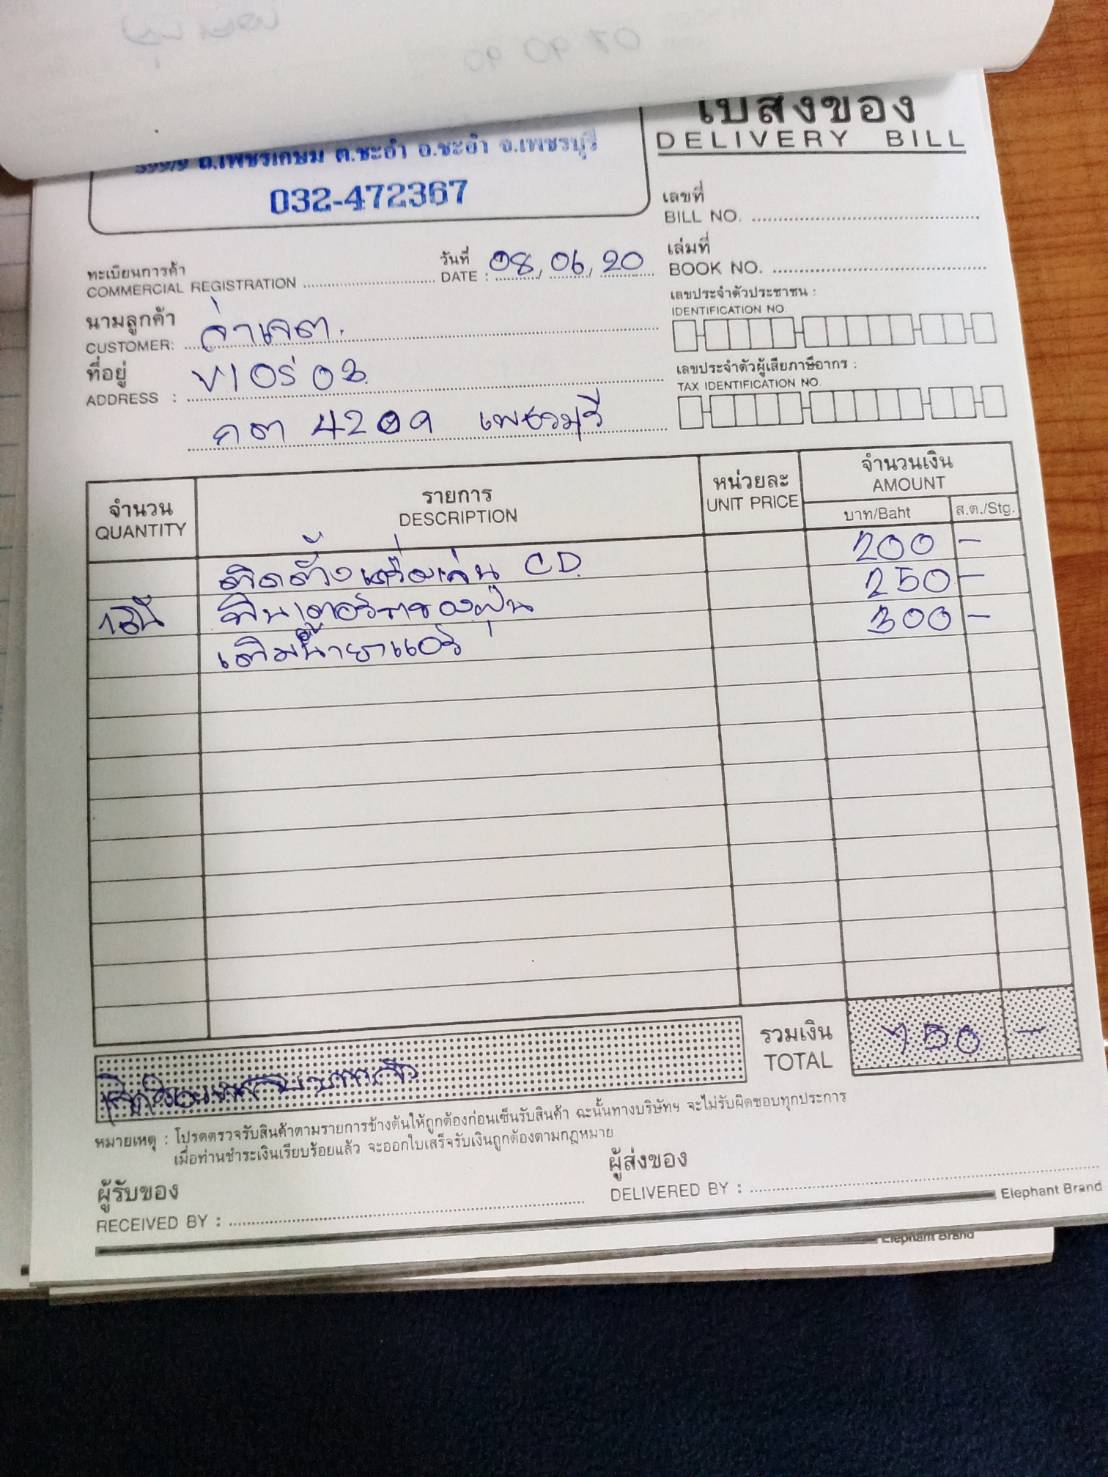 ใบส่งของ
DELIVERY BILL
599/9 ถ.เพชรเกษม ต.ชะอำ อ.ชะอำ จ.เพชรบุรี
032-472367
เลขที่
BILL NO.
เล่มที่
BOOK NO.
ทะเบียนการค้า
COMMERCIAL REGISTRATION
วันที่
DATE : 08, 06, 20
เลขประจำตัวประชาชน :
IDENTIFICATION NO
นามลูกค้า
CUSTOMER: จ่าเจต.
เลขประจำตัวผู้เสียภาษีอากร :
TAX IDENTIFICATION NO.
ที่อยู่
ADDRESS :
4209 เพชรบุรี
จำนวน
QUANTITY
รายการ
DESCRIPTION
หน่วยละ
UNIT PRICE
จำนวนเงิน
AMOUNT
บาท/Baht
ส.ต./Stg.
ติดตั้งเครื่องเล่น CD. 200 -
1อัน ฟินเตอร์กรองฝุ่น 250 -
เติมน้ำยาแอร์ 300 -
รวมเงิน
TOTAL 750 -
หมายเหตุ : โปรดตรวจรับสินค้าตามรายการข้างต้นให้ถูกต้องก่อนเซ็นรับสินค้า ฉะนั้นทางบริษัทฯ จะไม่รับผิดชอบทุกประการ
เมื่อท่านชำระเงินเรียบร้อยแล้ว จะออกใบเสร็จรับเงินถูกต้องตามกฎหมาย
ผู้รับของ
RECEIVED BY :
ผู้ส่งของ
DELIVERED BY :
Elephant Brand
Elephant Brand